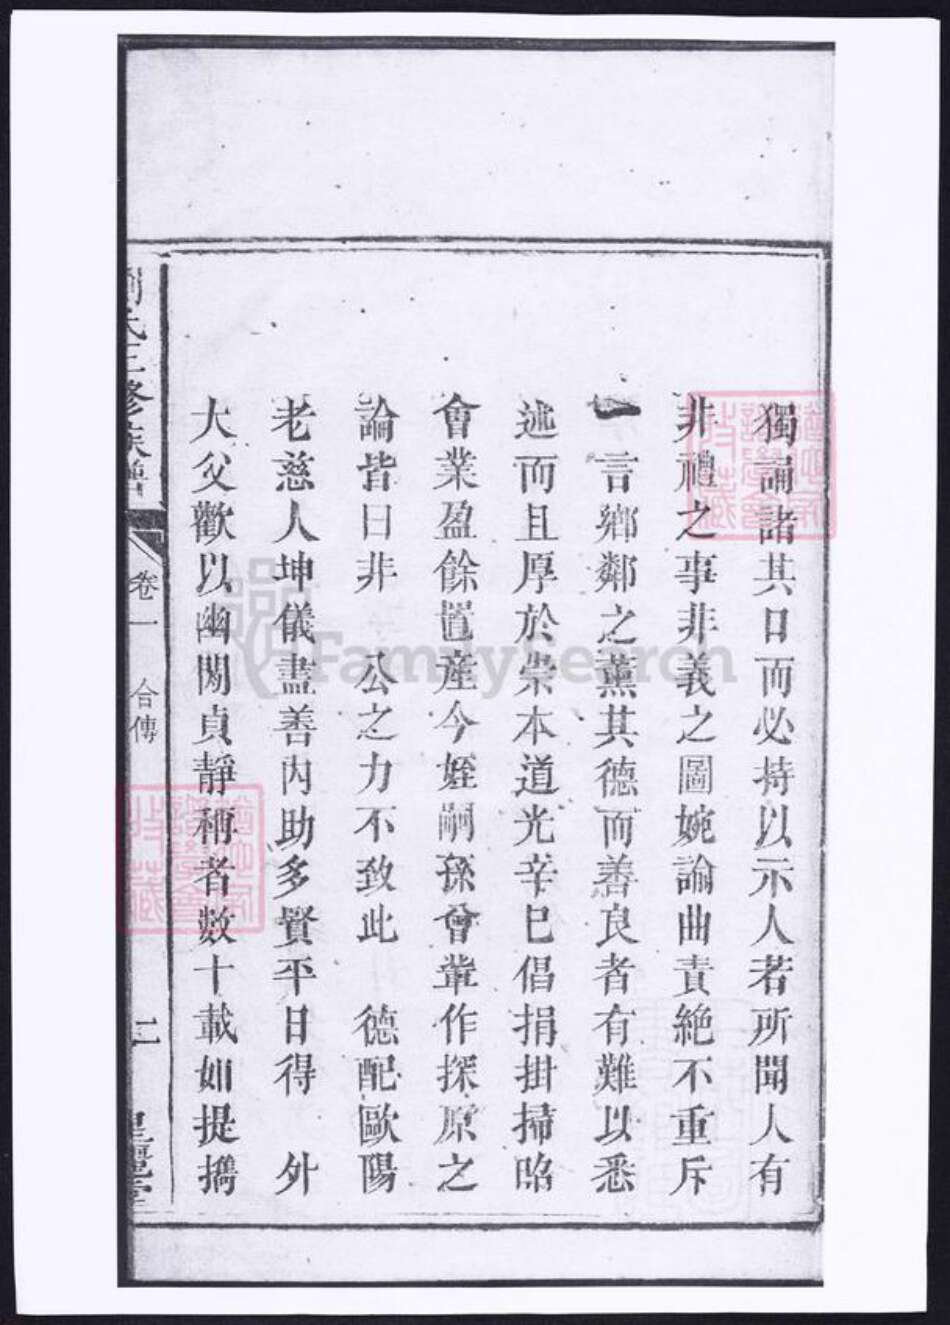 獨誦諸其口而必持以示人若所聞人有
非禮之事非義之圖婉諭曲責絶不重斥
一言鄉鄰之薰其德而善良者有難以悉
述而且厚於崇本道光辛巳倡捐掛掃
會業盈餘置産今姪嗣孫曾輩作探原之
論皆曰非 公之力不致此 德配歐陽
老慈人坤儀盡善内助多賢平日得 外
大父歡以幽閑貞靜稱者數十載如提携
劉氏三修族譜 卷一 合傳 二
FamilySearch